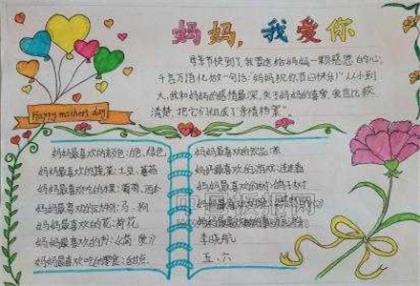 妈妈，我爱你
母亲节快到了，我要送给妈妈一颗感恩的心，
千言万语化做一句话：“妈妈祝你节日快乐！”从小到
大，我和妈妈的感情最深，关于妈妈的喜爱，我也比较
清楚，把它们组成了“亲情档案”
Happy mothers day
妈妈最喜欢的颜色：白色、绿色
妈妈最喜欢的蔬菜：土豆、蕃茄
妈妈最喜欢吃的水果：葡萄、西
妈妈最喜欢的动物：马、狗
妈妈最喜欢的花：荷花
妈妈最喜欢的书：《简·爱》
妈妈最喜欢吃的零食：甜点
妈妈最喜欢的饮品：茶
妈妈最喜欢的游戏：连连看
妈妈最喜欢的树：鸽子树
妈妈最喜欢
妈妈最喜欢
李晓航
五、六